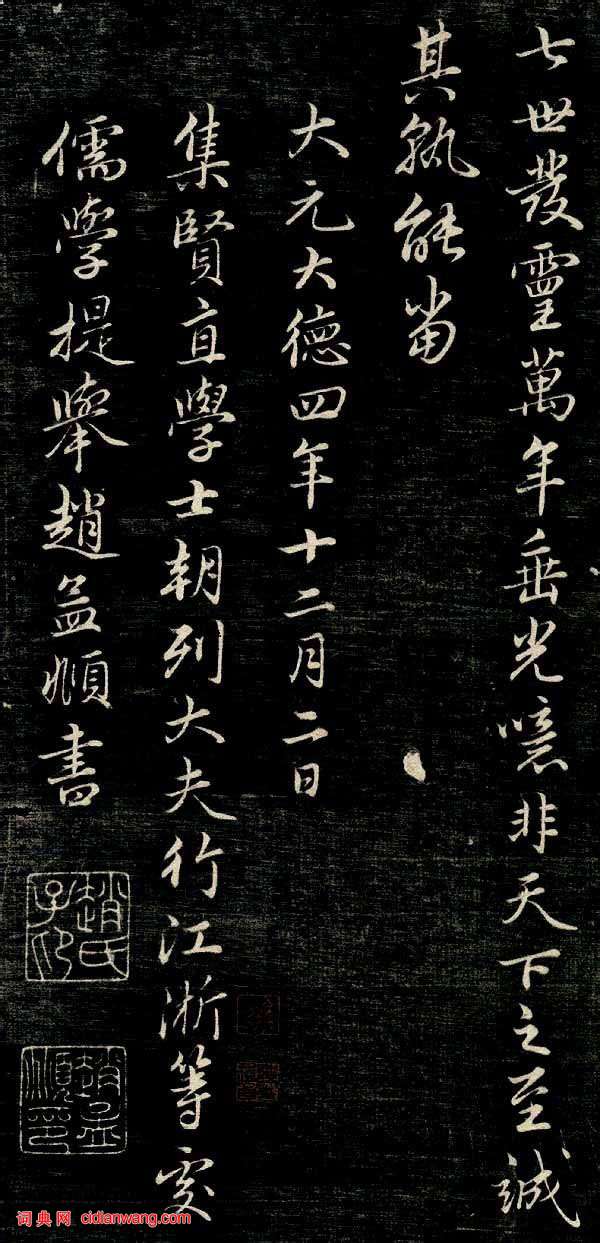 七世發靈萬年垂光噫非天下之至誠
其孰能當
大元大德四年十二月二日
集賢直學士朝列大夫行江浙等處
儒學提舉趙孟頫書
趙氏子昂
趙孟頫印
词典网 cidianwang.com